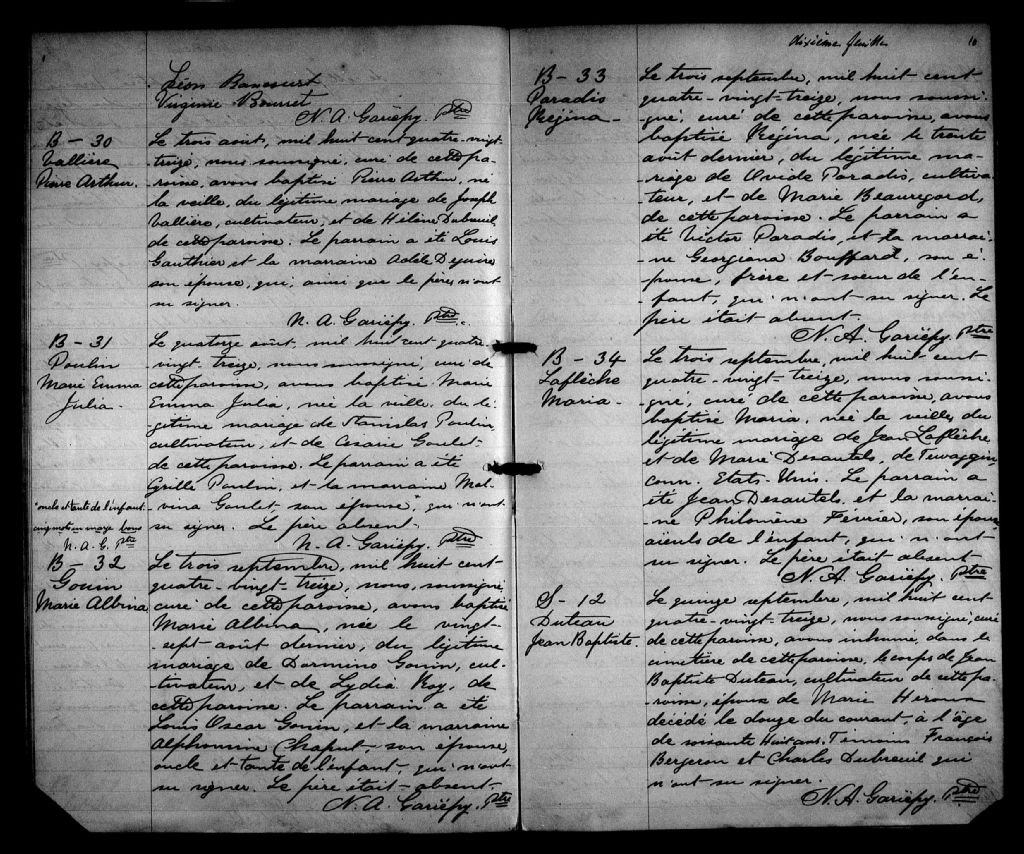 Léon Bancourt
Virginie Bourret
N. A. Gariépy. Ptre
B – 30
Vallière
Pierre Arthur.
Le trois août, mil huit cent quatre-vingt-
-treize, nous soussigné, curé de cette pa-
-roisse, avons baptisé Pierre Arthur, né
la veille, du légitime mariage de Joseph
Vallière, cultivateur, et de Hélène Dubreuil
de cette paroisse. Le parrain a été Louis
Gauthier, et la marraine Adèle Deguire
son épouse, qui, ainsi que le père, n'ont
su signer.
N. A. Gariépy. Ptre.
B – 31
Poulin
Marie Emma
Julia.
Le quatorze août, mil huit cent quatre-
-vingt-treize, nous soussigné, curé de
cette paroisse, avons baptisé Marie
Emma Julia, née la veille, du lé-
gitime mariage de Stanislas Poulin,
cultivateur, et de Césarie Goulet
de cette paroisse. Le parrain a été
Cyrille Poulin, et la marraine Mel-
vina Goulet, son épouse, qui n'ont
su signer. Le père absent.
N. A. Gariépy. Ptre
"oncle et tante de l'enfant
cinq mots en marge bons
N. A. G. Ptre
B – 32
Gouin
Marie Albina
Le trois septembre, mil huit cent
quatre-vingt-treize, nous, soussigné,
curé de cette paroisse, avons baptisé
Marie Albina, née le vingt-
-sept août dernier, du légitime
mariage de Gouin, cul-
-tivateur, et de Lydia Roy, de
cette paroisse. Le parrain a été
Louis Oscar Gouin, et la marraine
Alphonsine Chaput son épouse,
oncle et tante de l'enfant, qui n'ont
su signer. Le père était absent.
N. A. Gariépy. Ptre
dixième feuille
10
B – 33
Paradis
Régina
Le trois septembre, mil huit cent
quatre-vingt-treize, nous soussi-
gné, curé de cette paroisse, avons
baptisé Régina, née le trente
août dernier, du légitime ma-
-riage de Ovide Paradis, cultiva-
teur, et de Marie Beauregard,
de cette paroisse. Le parrain a
été Victor Paradis, et la marrai-
-ne Georgiana Bouffard, son é-
-pouse, frère et soeur de l'en-
-fant, qui n'ont su signer. Le
père était absent.
N. A. Gariépy. Ptre
B – 34
Laflèche
Maria.
Le trois septembre, mil huit cent
quatre-vingt-treize, nous soussi-
gné, curé de cette paroisse, avons
baptisé Maria, née la veille, du
légitime mariage de Jean Laflèche,
et de Marie Desautels, de
conn. Etats-Unis. Le parrain a
été Jean Desautels, et la marrai-
-ne Philomène Février, son épouse
aïeuls de l'enfant, qui n'ont
su signer. Le père était absent
N. A. Gariépy. Ptre
S – 12
Duteau
Jean Baptiste.
Le quinze septembre, mil huit cent
quatre-vingt-treize, nous soussigné, curé
de cette paroisse, avons inhumé, dans le
cimetière de cette paroisse, le corps de Jean
Baptiste Duteau, cultivateur de cette pa-
-roisse, époux de Marie
décédé le douze du courant, à l'âge
de soixante huit ans. Témoins François
Bergeron et Charles Dubreuil qui
n'ont su signer.
N. A. Gariépy. Ptre